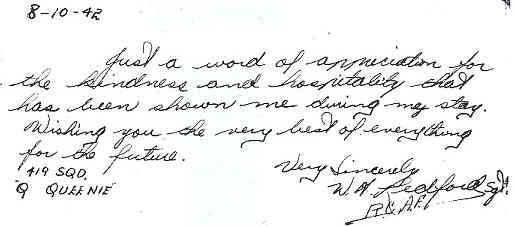 8-10-42
Just a word of appreciation for
the kindness and hospitality that
has been shown me during my stay.
Wishing you the very best of everything
for the future.
419 SQD.
"Q QUEENIE"
Very Sincerely
W. A. Bedford Sgt.
R.C.A.F.